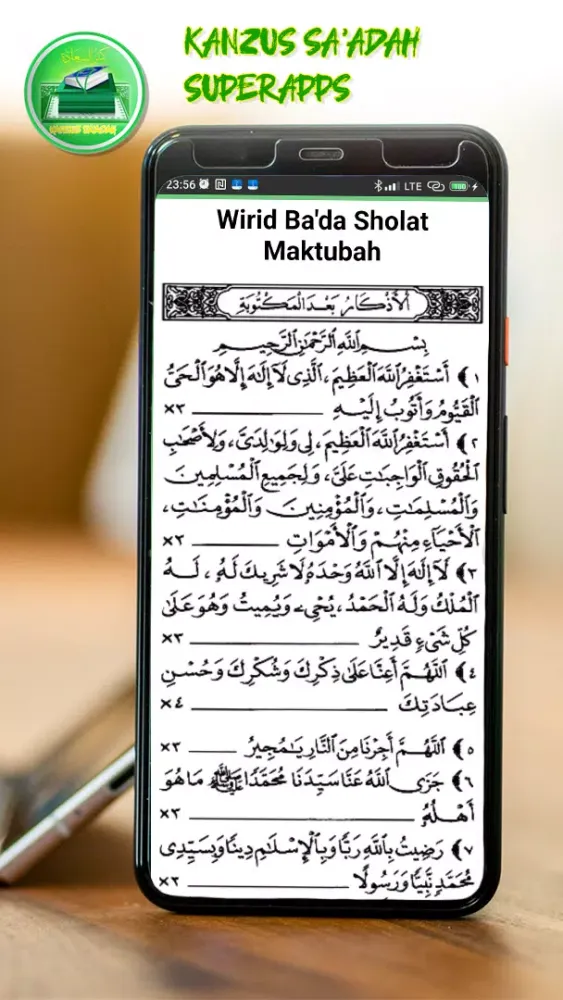 KANZUS SA'ADAH
SUPERAPPS
KANZUS SA'ADAH
23:56
LTE
Wirid Ba'da Sholat
Maktubah
اَلْأَذْكَارُ بَعْدَ الْمَكْتُوبَةِ
بِسْمِ اللّٰهِ الرَّحْمٰنِ الرَّحِيْمِ
١) أَسْتَغْفِرُ اللّٰهَ الْعَظِيْمَ، الَّذِى لَا إِلٰهَ إِلَّا هُوَ الْحَىُّ
الْقَيُّوْمُ وَأَتُوْبُ إِلَيْهِ ×٣
٢) أَسْتَغْفِرُ اللّٰهَ الْعَظِيْمَ، لِى وَلِوَالِدَىَّ، وَلِأَصْحَابِ
الْحُقُوْقِ الْوَاجِبَاتِ عَلَىَّ، وَلِجَمِيْعِ الْمُسْلِمِيْنَ
وَالْمُسْلِمَاتِ، وَالْمُؤْمِنِيْنَ وَالْمُؤْمِنَاتِ،
الْأَحْيَاءِ مِنْهُمْ وَالْأَمْوَاتِ ×٣
٣) لَا إِلٰهَ إِلَّا اللّٰهُ وَحْدَهُ لَا شَرِيْكَ لَهُ، لَهُ
الْمُلْكُ وَلَهُ الْحَمْدُ، يُحْيِى وَيُمِيْتُ وَهُوَ عَلَى
كُلِّ شَىْءٍ قَدِيْرٌ ×٣
٤) اَللّٰهُمَّ أَعِنَّا عَلَى ذِكْرِكَ وَشُكْرِكَ وَحُسْنِ
عِبَادَتِكَ ×٤
٥) اَللّٰهُمَّ أَجِرْنَا مِنَ النَّارِ يَا مُجِيْرُ ×٣
٦) جَزَى اللّٰهُ عَنَّا سَيِّدَنَا مُحَمَّدًا ﷺ مَا هُوَ
أَهْلُهُ ×٣
٧) رَضِيْتُ بِاللّٰهِ رَبًّا وَبِالْإِسْلَامِ دِيْنًا وَبِسَيِّدِى
مُحَمَّدٍ نَبِيًّا وَرَسُوْلًا ×٣